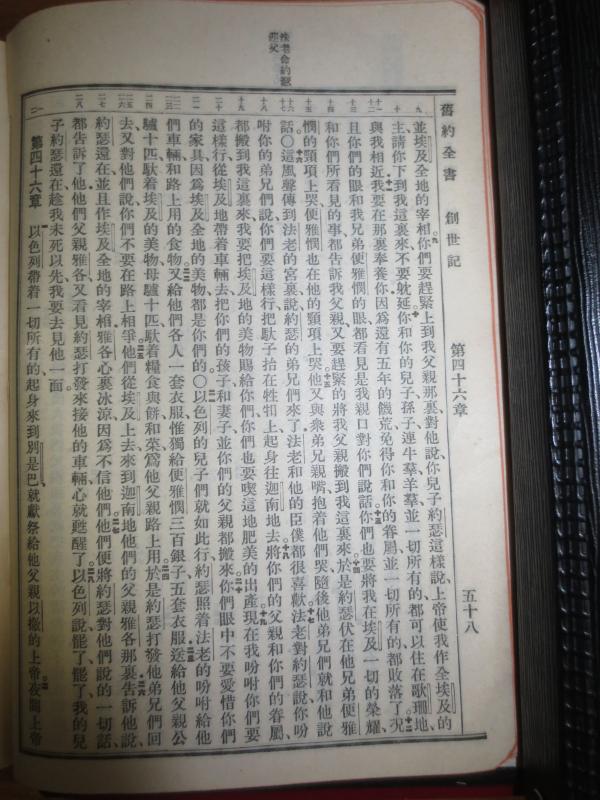 舊約全書 創世記 第四十六章 五十八
法老命約瑟
迎父
九並埃及全地的宰相你們要趕緊上到我父親那裏對他說你兒子約瑟這樣說上帝使我作全埃及的
十主請你下到我這裏來不要躭延你和你的兒子孫子連牛羣羊羣並一切所有的都可以住在歌珊地
與我相近我要在那裏奉養你因爲還有五年的饑荒免得你和你的眷屬並一切所有的都敗落了況
且你們的眼和我兄弟便雅憫的眼都看見是我親口對你們說話你們也要將我在埃及一切的榮耀
和你們所看見的事都告訴我父親又要趕緊的將我父親搬到我這裏來於是約瑟伏在他兄弟便雅
憫的頸項上哭便雅憫也在他的頸項上哭他又與衆弟兄親嘴抱着他們哭隨後他弟兄們就和他說
話〇這風聲傳到法老的宮裏說約瑟的弟兄們來了法老和他的臣僕都很喜歡法老對約瑟說你吩
咐你的弟兄們說你們要這樣行把馱子抬在牲口上起身往迦南地去將你們的父親和你們的眷屬
都搬到我這裏來我要把埃及地的美物賜給你們你們也要喫這地肥美的出產現在我吩咐你們要
這樣行從埃及地帶着車輛去把你們的孩子和妻子並你們的父親都搬來你們眼中不要愛惜你們
的家具因爲埃及全地的美物都是你們的〇以色列的兒子們就如此行約瑟照着法老的吩咐給他
們車輛和路上用的食物又給他們各人一套衣服惟獨給便雅憫三百銀子五套衣服送給他父親公
驢十匹馱着埃及的美物母驢十匹馱着糧食與餅和菜爲他父親路上用於是約瑟打發他弟兄們回
去又對他們說你們不要在路上相爭他們從埃及上去來到迦南地他們的父親雅各那裏告訴他說
約瑟還在並且作埃及全地的宰相雅各心裏冰涼因爲不信他們他們便將約瑟對他們說的一切話
都告訴了他他們父親雅各又看見約瑟打發來接他的車輛心就甦醒了以色列說罷了罷了我的兒
子約瑟還在趁我未死以先我要去見他一面
第四十六章 以色列帶着一切所有的起身來到別是巴就獻祭給他父親以撒的上帝夜間上帝